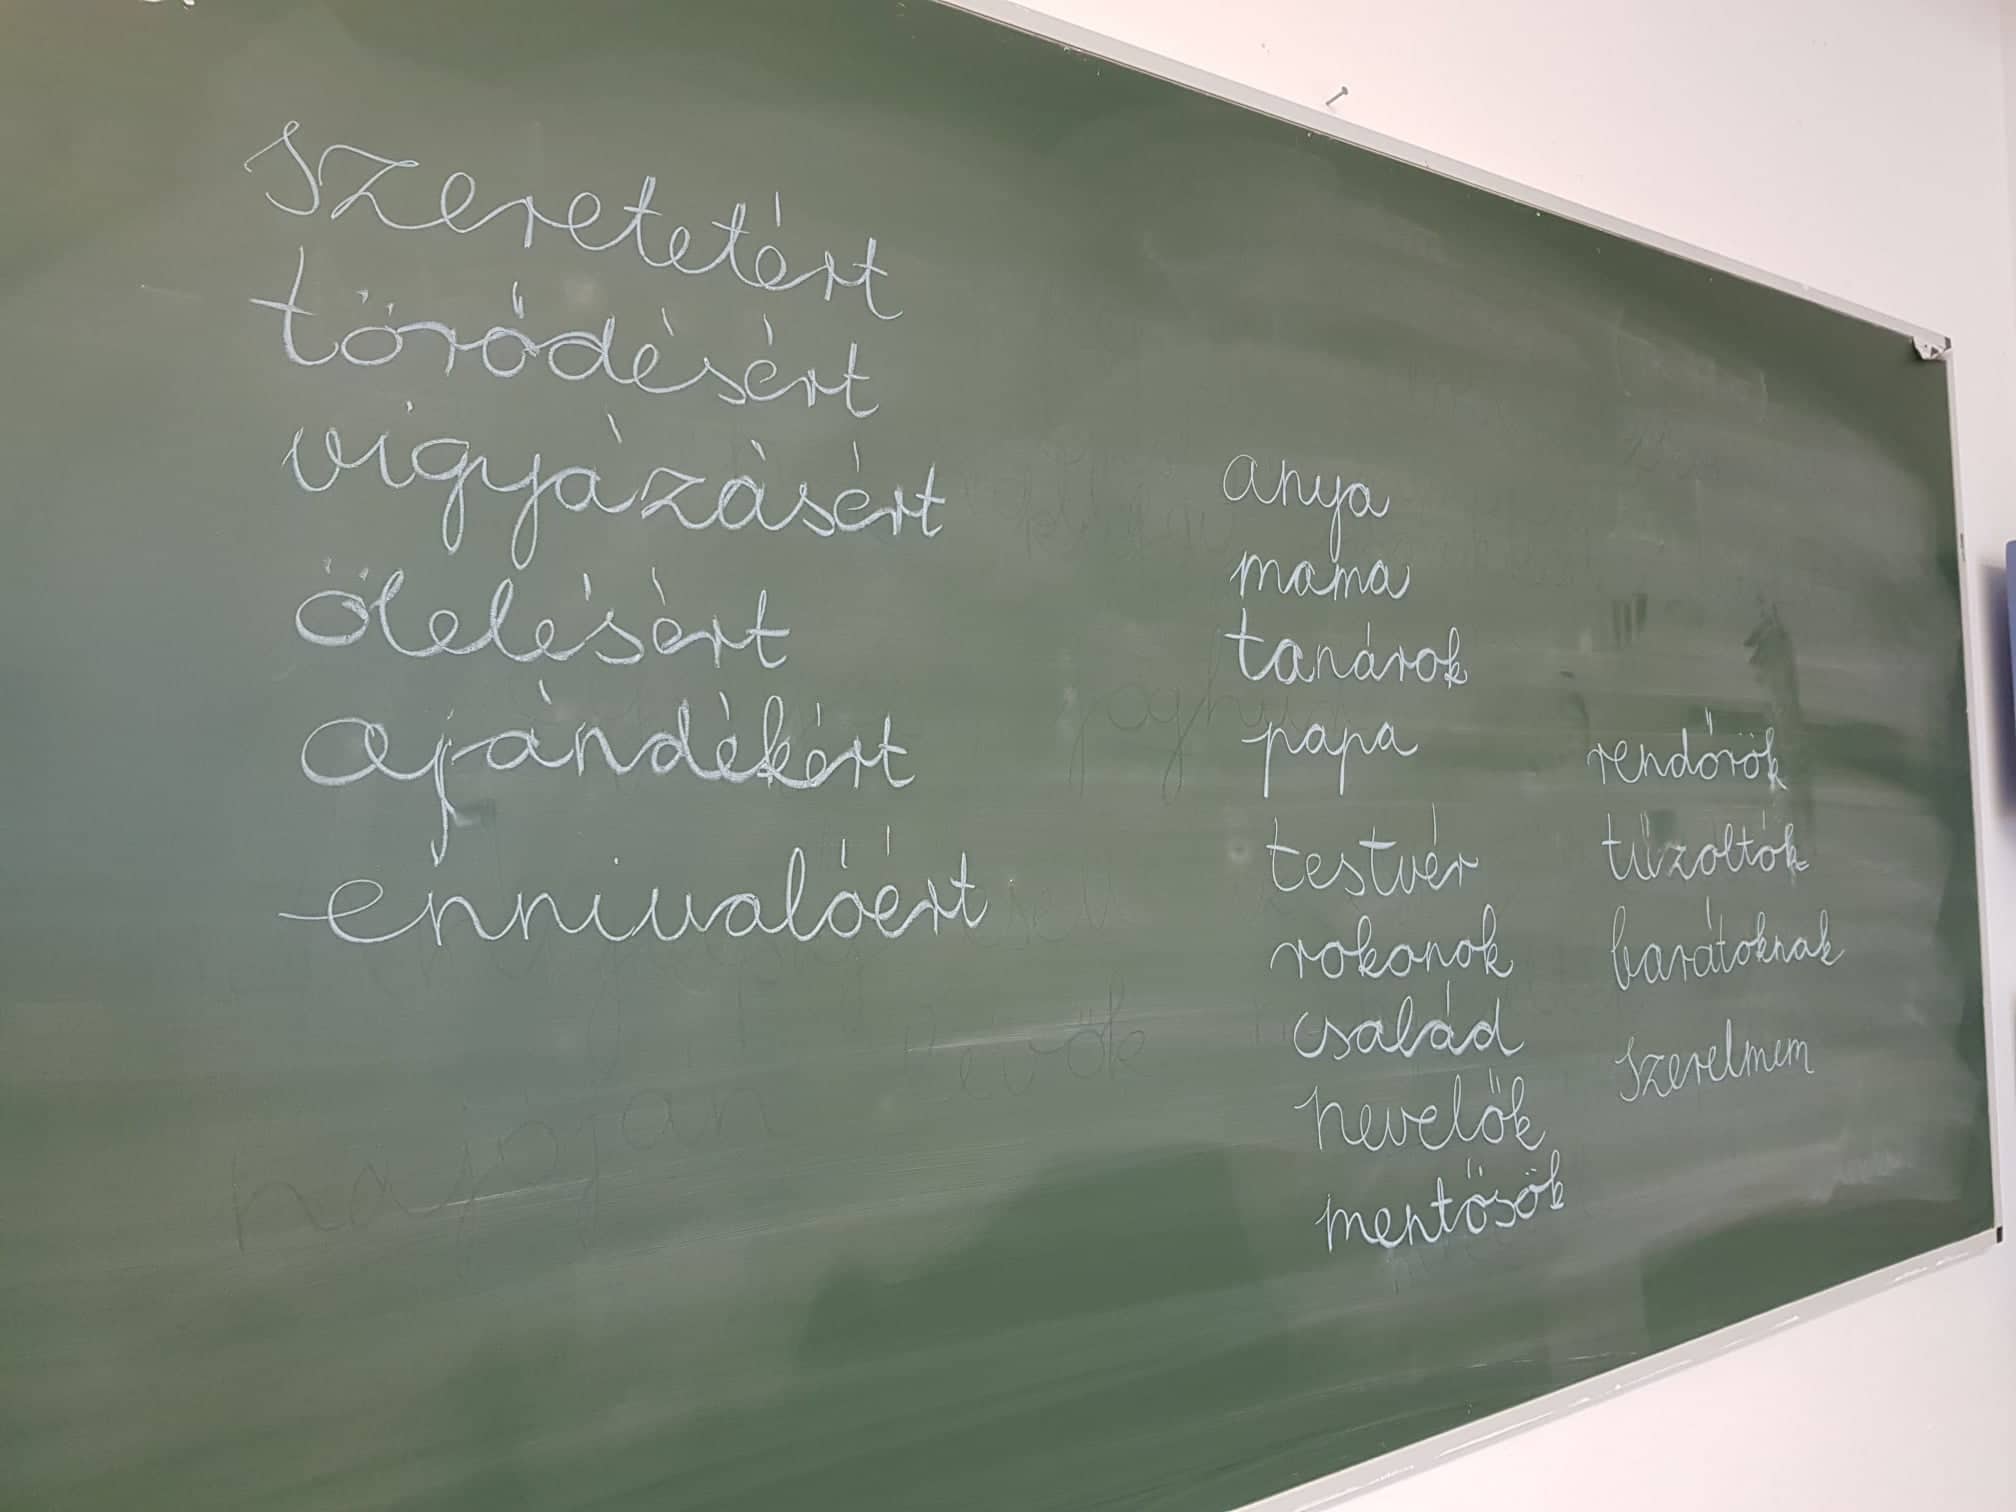 szeretetért
törődésért
vigyázásért
ölelésért
ajándékért
ennivalóért
anya
mama
tanárok
papa
testvér
rokonok
család
nevelők
mentősök
rendőrök
tűzoltók
barátoknak
szerelmem